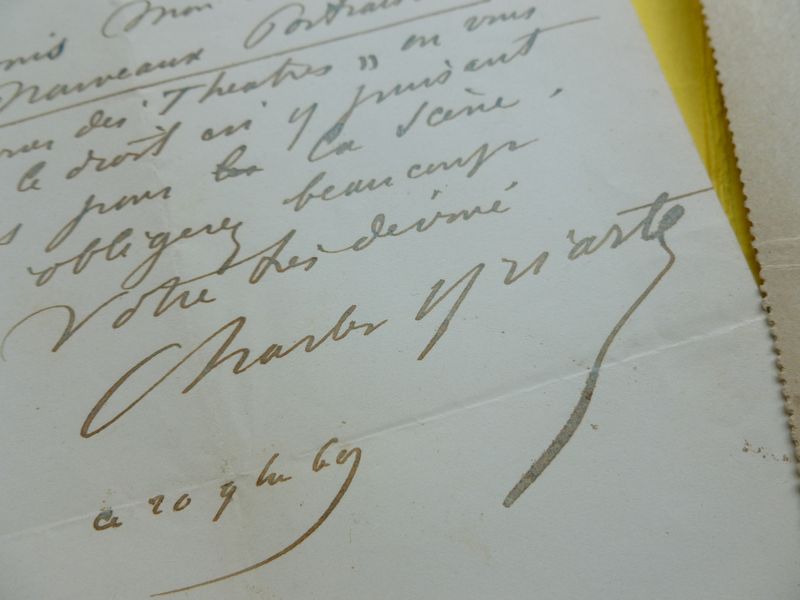 mis Mon
Nouveaux Portraits
des "Théatres" on vous
le droit en y puisant
pour la scène.
obligerez beaucoup
Votre très dévoué
Charles Yriarte
ce 20 9bre 69